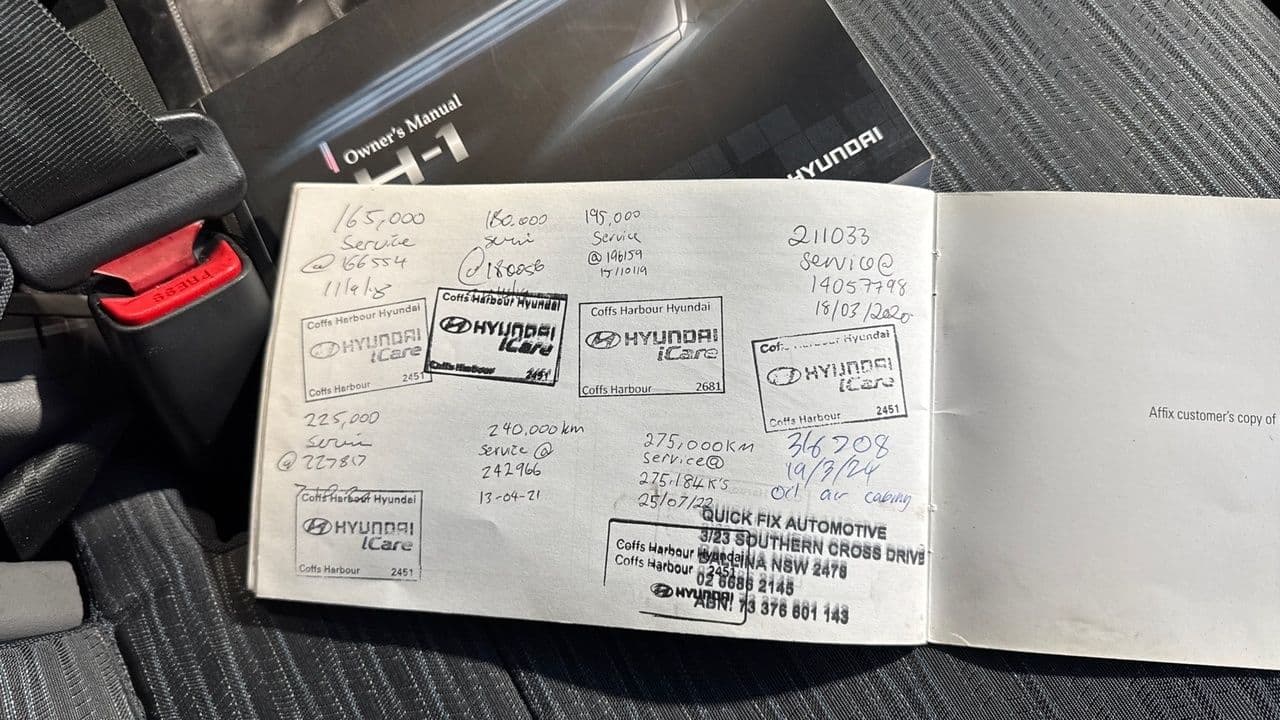 PRESS
Owner's Manual
H-1
HYUNDAI
165,000
Service
@ 166554
Coffs Harbour Hyundai
HYUNDAI
iCare
Coffs Harbour 2451
180,000
@180056
Coffs Harbour Hyundai
HYUNDAI
iCare
Coffs Harbour 2451
195,000
Service
@ 196159
15/10/19
Coffs Harbour Hyundai
HYUNDAI
iCare
Coffs Harbour 2681
211033
service@
14057798
18/03/2020
Harbour Hyundai
HYUNDAI
iCare
Coffs Harbour 2451
225,000
@ 227817
Coffs Harbour Hyundai
HYUNDAI
iCare
Coffs Harbour 2451
240,000km
service @
242966
13-04-21
275,000KM
service@
275,184K's
25/07/22
Coffs Harbour Hyundai
Coffs Harbour 2451
HYUNDAI
316708
19/3/24
oil air cabing
QUICK FIX AUTOMOTIVE
3/23 SOUTHERN CROSS DRIVE
BALLINA NSW 2478
02 6686 2145
ABN: 73 376 601 143
Affix customer's copy of